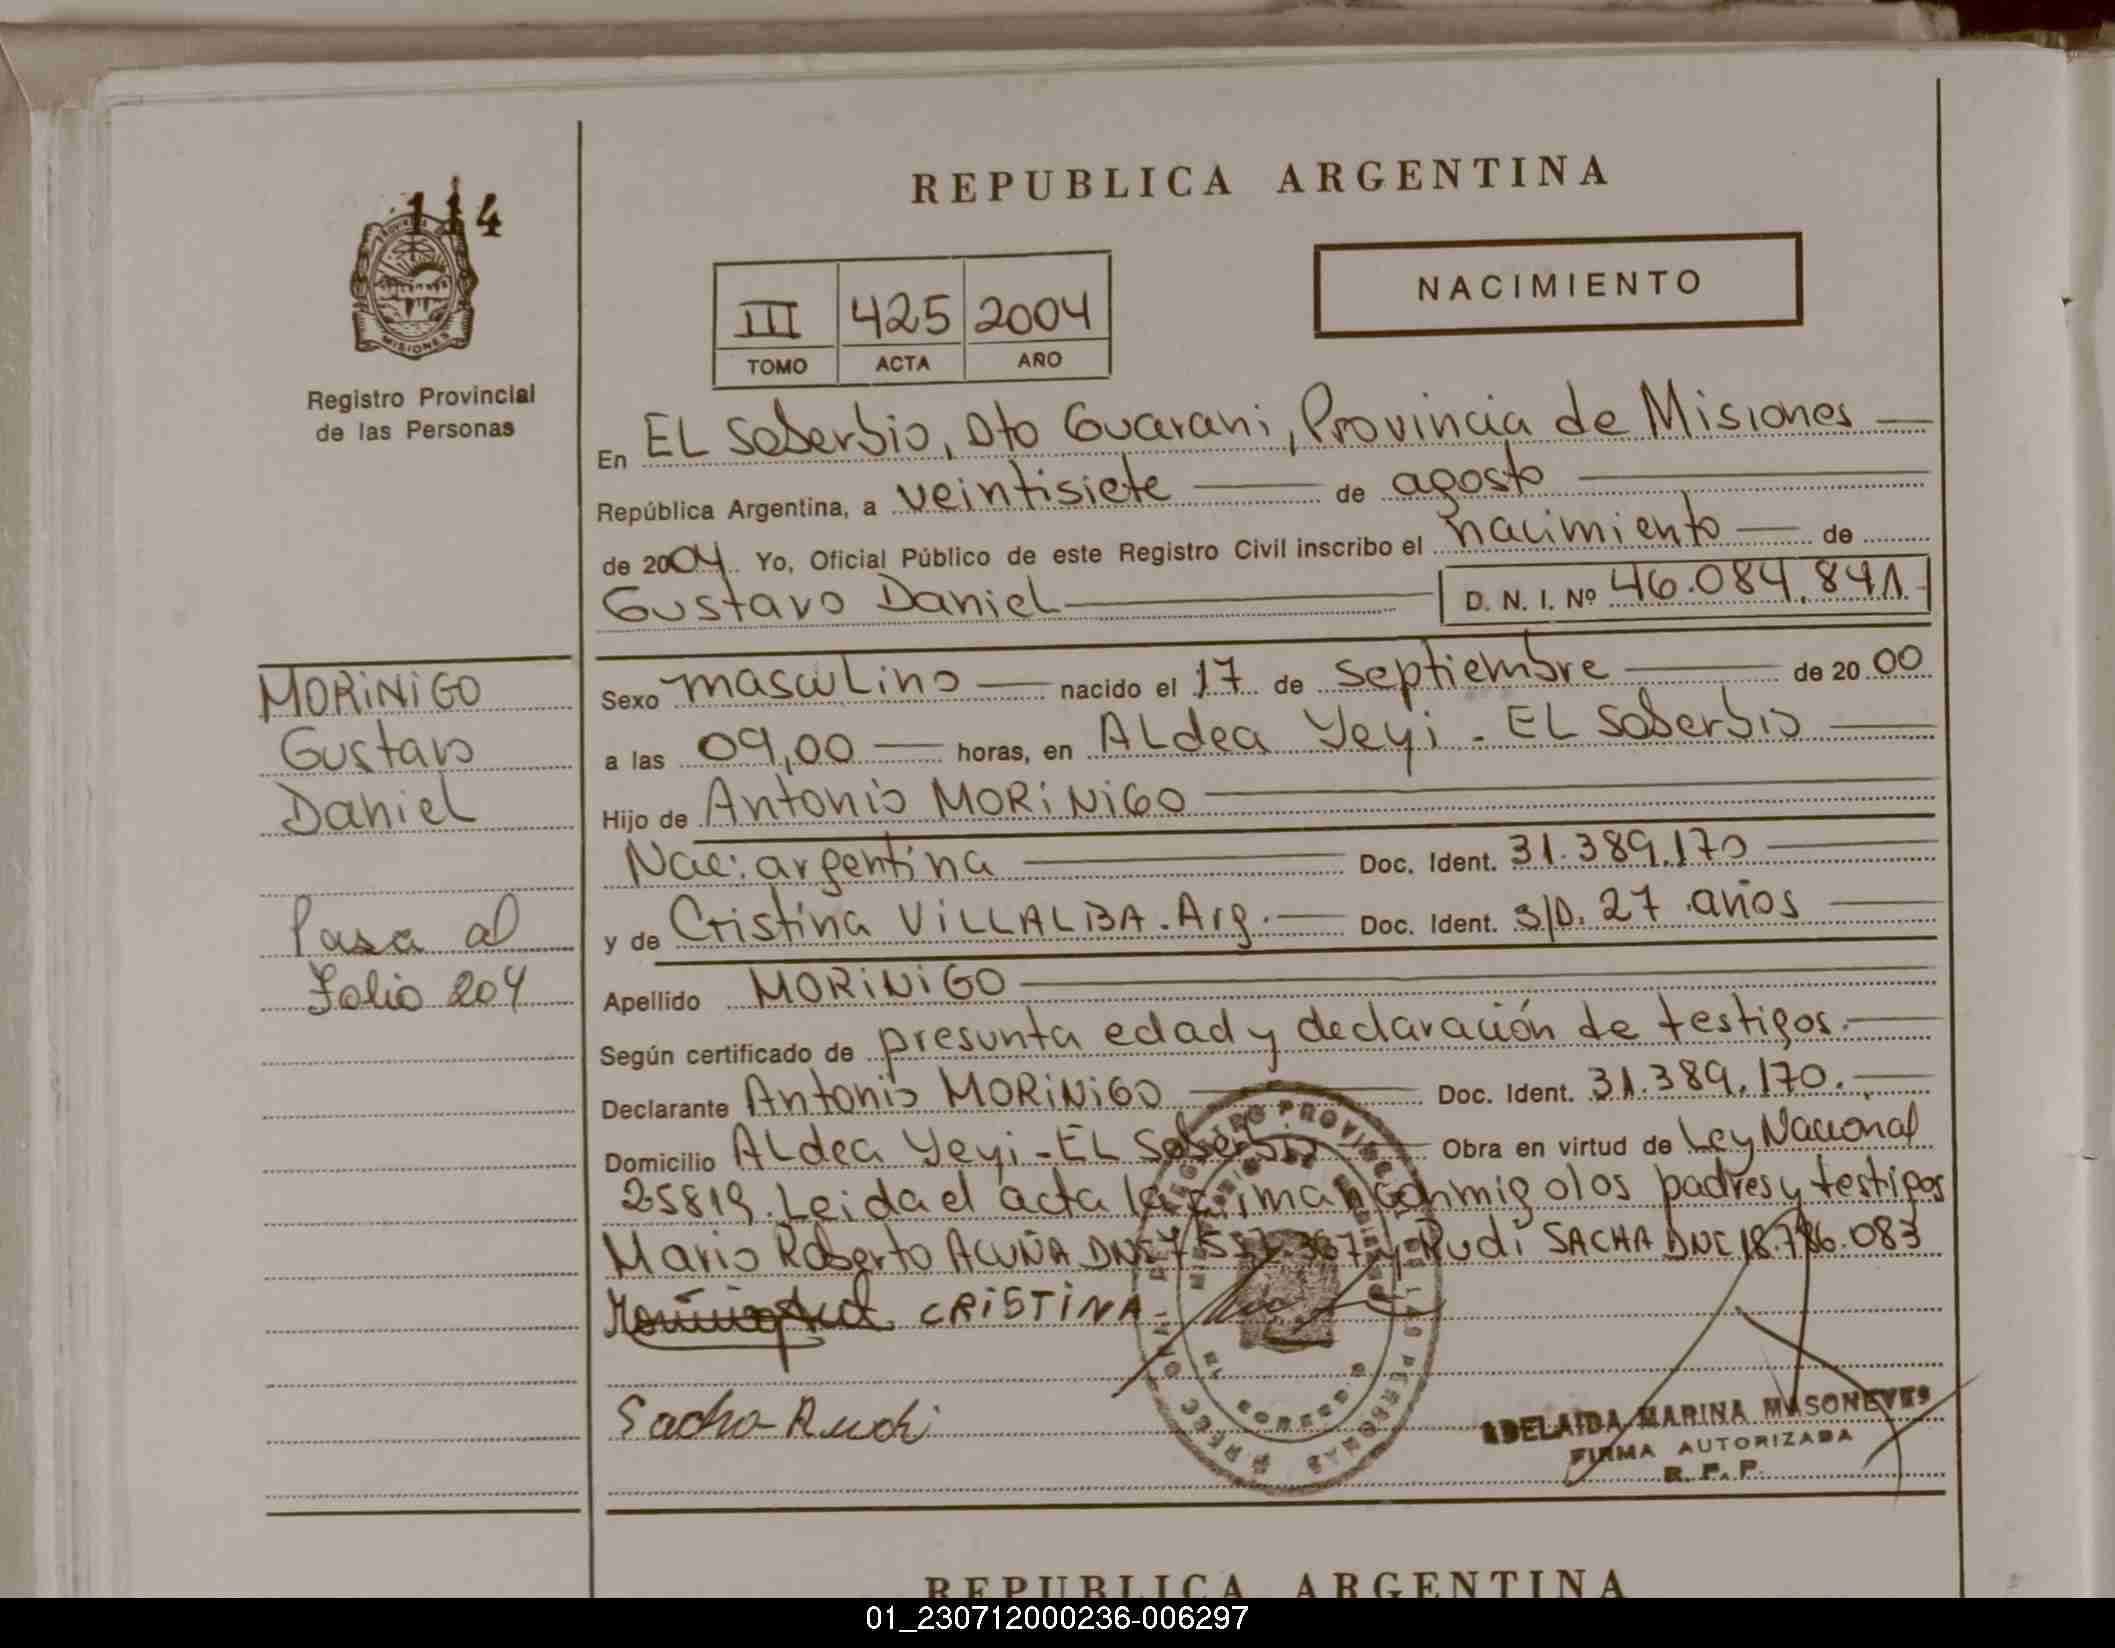 114
MISIONES
Registro Provincial
de las Personas
REPUBLICA ARGENTINA
III 425 2004
TOMO ACTA AÑO
NACIMIENTO
En EL Soberbio, Dto Guarani, Provincia de Misiones
República Argentina, a veintisiete de agosto
de 2004 Yo, Oficial Público de este Registro Civil inscribo el nacimiento de
Gustavo Daniel D. N. I. Nº 46.084.841
MORiNiGO
Gustavo
Daniel
Pasa al
Folio 204
Sexo masculino nacido el 17 de septiembre de 20 00
a las 09,00 horas, en ALdea Yeyi - EL Soberbio
Hijo de Antonio MORiNiGO
Nac: argentina Doc. Ident. 31.389.170
y de Cristina ViLLALBA. Arg. Doc. Ident. S/D. 27 años
Apellido MORiNiGO
Según certificado de presunta edad y declaración de testigos.
Declarante Antonio MORiNiGO Doc. Ident. 31.389.170.
Domicilio ALdea Yeyi - EL Soberbio Obra en virtud de Ley Nacional
25819. Leida el acta la firman conmigo los padres y testigos
Mario Roberto ACUÑA DNI 7 y Rudi SACHA DNI 18.786.083
CRiSTiNA
Sacha Rudi
ADELAIDA MARINA MASONEVES
FIRMA AUTORIZADA
R. P. P.
REPUBLICA ARGENTINA
01_230712000236-006297